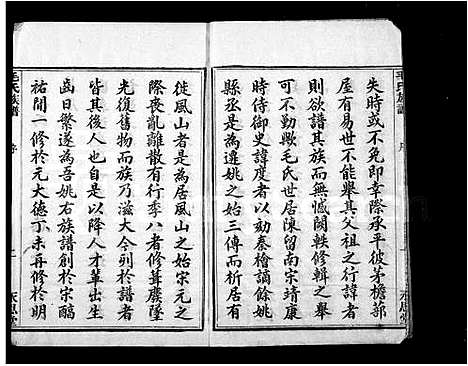 毛氏族譜
序
永思堂
失時或不免即幸際承平彼茅檐蔀
屋有易世不能舉其父祖之行諱者
則欲譜其族而無憾闕軼修輯之舉
可不勤歟毛氏世居陳留南宋靖康
時侍御史諱度者以劾秦檜謫餘姚
縣丞是為遷姚之始三傳而析居有
徙風山者是為居風山之始宋元之
際喪亂離散有行季八者修葺廢墜
光復舊物而族乃滋大今列於譜者
皆其後人也自是以降人才輩出生
齒日繁遂為吾姚右族譜創於宋酩
祐間一修於元大德丁未再修於明
毛氏族譜
序
二
永思堂